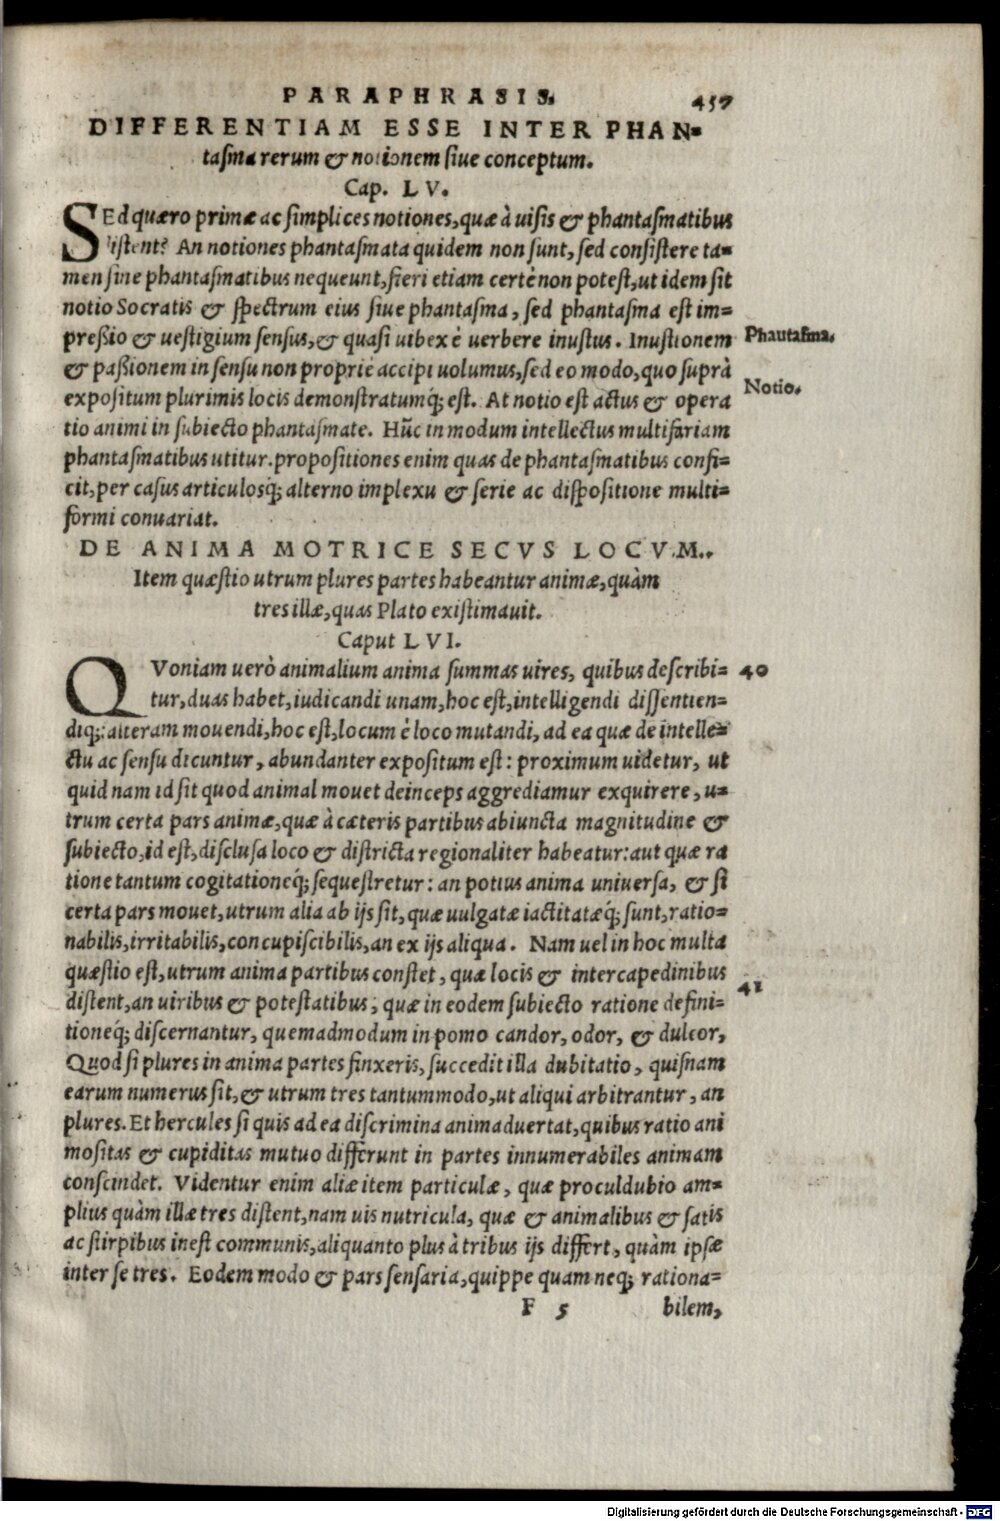 PARAPHRASIS. 457
DIFFERENTIAM ESSE INTER PHAN-
tasma rerum & notionem siue conceptum.
Cap. LV.
SEd quæro primæ ac simplices notiones, quæ à uisis & phantasmatibus
distent? An notiones phantasmata quidem non sunt, sed consistere ta-
men sine phantasmatibus nequeunt, fieri etiam certè non potest, ut idem sit
notio Socratis & spectrum eius siue phantasma, sed phantasma est im-
preßio & uestigium sensus, & quasi uibex è uerbere inustus. Inustionem
Phantasma.
& paßionem in sensu non proprie accipi uolumus, sed eo modo, quo suprà
Notio.
expositum plurimis locis demonstratumq́; est. At notio est actus & opera
tio animi in subiecto phantasmate. Hũc in modum intellectus multifariam
phantasmatibus utitur. propositiones enim quas de phantasmatibus confi-
cit, per casus articulosq́; alterno implexu & serie ac dispositione multi-
formi conuariat.
DE ANIMA MOTRICE SECVS LOCVM.
Item quæstio utrum plures partes habeantur animæ, quàm
tres illæ, quas Plato existimauit.
Caput LVI.
QVoniam uerò animalium anima summas uires, quibus describi- 40
tur, duas habet, iudicandi unam, hoc est, intelligendi dissentien-
diq́;: alteram mouendi, hoc est, locum è loco mutandi, ad ea quæ de intelle-
ctu ac sensu dicuntur, abundanter expositum est: proximum uidetur, ut
quid nam id sit quod animal mouet deinceps aggrediamur exquirere, u-
trum certa pars animæ, quæ à cæteris partibus abiuncta magnitudine &
subiecto, id est, disclusa loco & districta regionaliter habeatur: aut quæ ra
tione tantum cogitationeq́; sequestretur: an potius anima uniuersa, & si
certa pars mouet, utrum alia ab ijs sit, quæ uulgatæ iactitatæq́; sunt, ratio-
nabilis, irritabilis, concupiscibilis, an ex ijs aliqua. Nam uel in hoc multa
quæstio est, utrum anima partibus constet, quæ locis & intercapedinibus
41
distent, an uiribus & potestatibus, quæ in eodem subiecto ratione defini-
tioneq́; discernantur, quemadmodum in pomo candor, odor, & dulcor,
Quod si plures in anima partes finxeris, succedit illa dubitatio, quisnam
earum numerus sit, & utrum tres tantummodo, ut aliqui arbitrantur, an
plures. Et hercules si quis ad ea discrimina animaduertat, quibus ratio ani
mositas & cupiditas mutuo differunt in partes innumerabiles animam
conscindet. Videntur enim aliæ item particulæ, quæ proculdubio am-
plius quàm illæ tres distent, nam uis nutricula, quæ & animalibus & satis
ac stirpibus inest communis, aliquanto plus à tribus ijs differt, quàm ipsæ
inter se tres. Eodem modo & pars sensaria, quippe quam neq; rationa-
F 5 bilem,
Digitalisierung gefördert durch die Deutsche Forschungsgemeinschaft - DFG